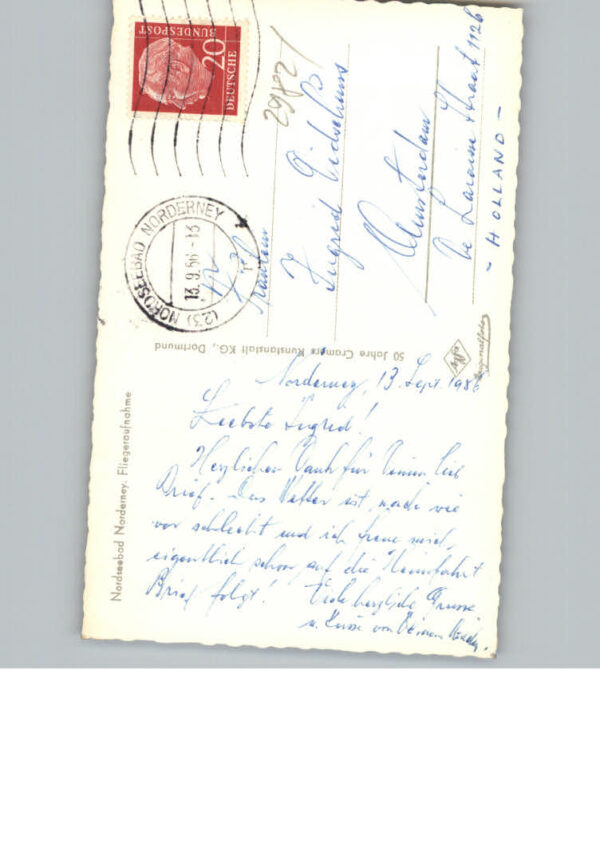 DEUTSCHE
BUNDESPOST
20
(23) NORDSEEBAD NORDERNEY
13.9.56-13
29782
Fräulein
Ingrid
Amsterdam
De Lairesse Straat 1126
- HOLLAND -
50 Jahre Cramers Kunstanstalt KG., Dortmund
Originalfoto
Nordseebad Norderney. Fliegeraufnahme
Norderney, 13 Sept 1956
Liebste Ingrid!
Herzlichen Dank für Deinen lieb
Brief. Das Wetter ist nach wie
vor schlecht und ich freue mich
eigentlich schon auf die Heimfahrt
Brief folgt! Viele herzliche Grüsse
u. Küsse von Deinem